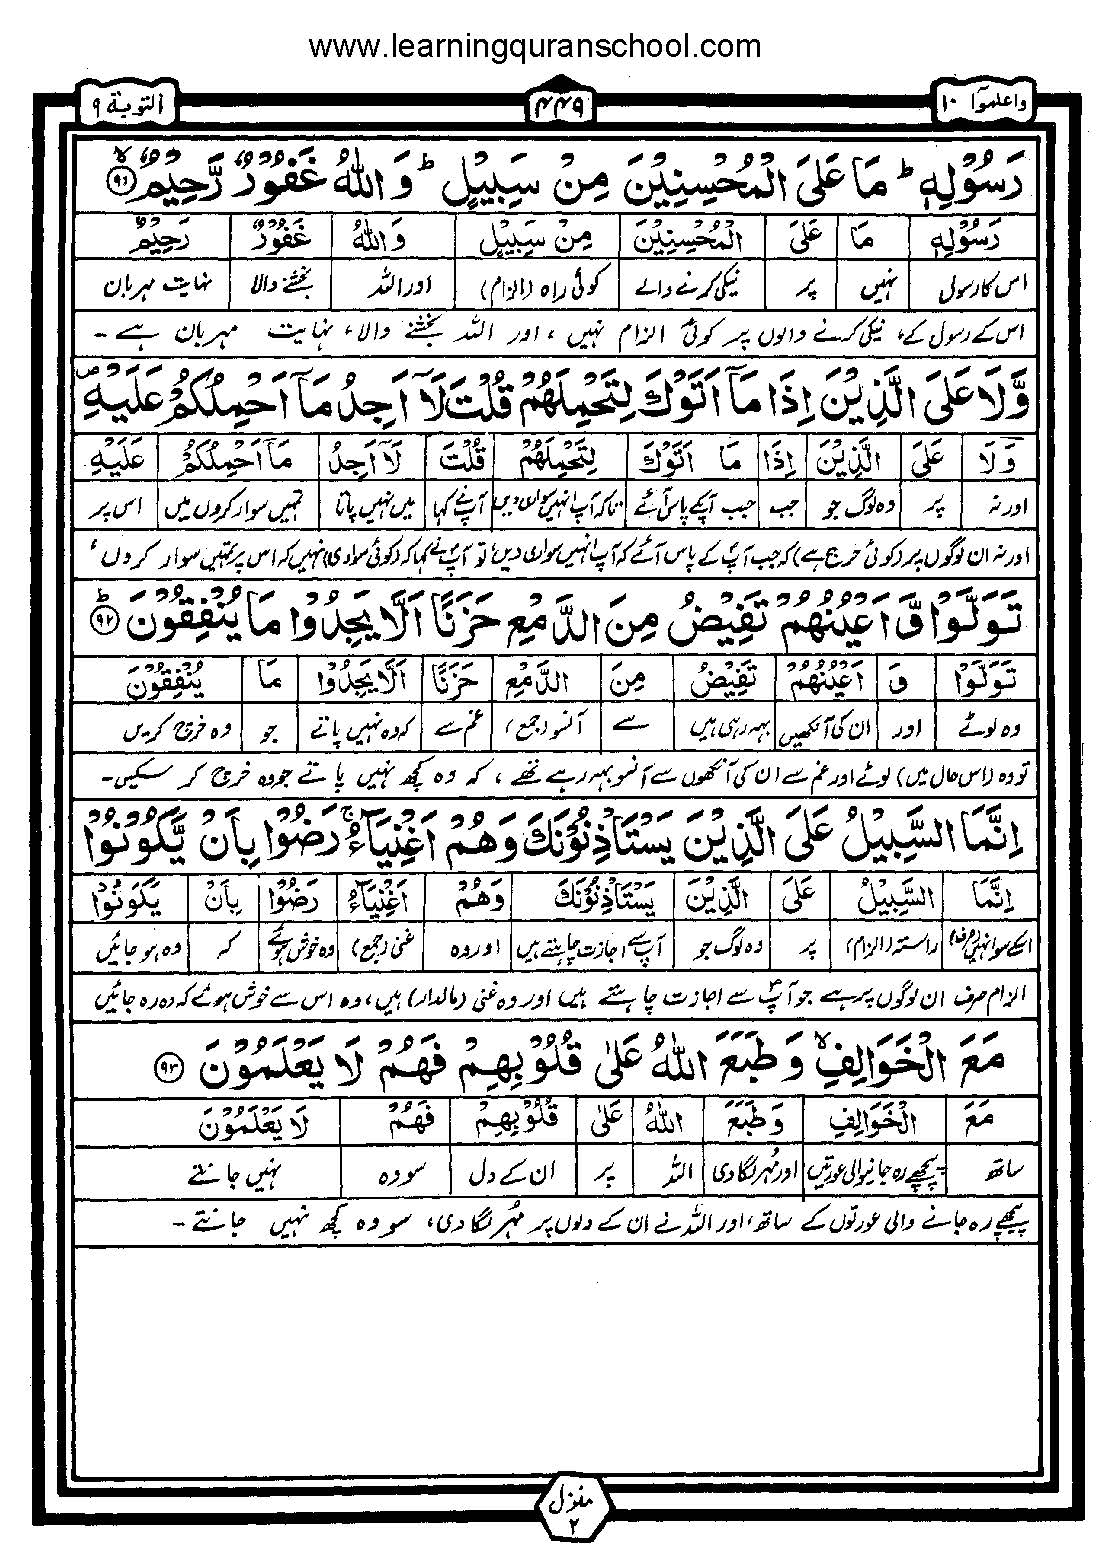 www.learningquranschool.com
واعلموآ ۱۰
۴۴۹
التوبة ۹
رَسُوْلِهٖ ؕ مَا عَلَی الْمُحْسِنِیْنَ مِنْ سَبِیْلٍ ؕ وَ اللّٰهُ غَفُوْرٌ رَّحِیْمٌ ۙ ۹۱
رَسُوْلِهٖ مَا عَلَی الْمُحْسِنِیْنَ مِنْ سَبِیْلٍ وَاللّٰهُ غَفُوْرٌ رَحِیْمٌ
اس کا رسول نہیں پر نیکی کرنے والے کوئی راہ (الزام) اور اللہ بخشنے والا نہایت مہربان
اس کے رسول کے، نیکی کرنے والوں پر کوئی الزام نہیں، اور اللہ بخشنے والا، نہایت مہربان ہے۔
وَّلَا عَلَی الَّذِیْنَ اِذَا مَاۤ اَتَوْكَ لِتَحْمِلَهُمْ قُلْتَ لَاۤ اَجِدُ مَاۤ اَحْمِلُكُمْ عَلَیْهِ ۪
وَّلَا عَلَی الَّذِیْنَ اِذَا مَاۤ اَتَوْكَ لِتَحْمِلَهُمْ قُلْتَ لَاۤ اَجِدُ مَاۤ اَحْمِلُكُمْ عَلَیْهِ
اور نہ پر وہ لوگ جو جب جب آپکے پاس آئے تاکہ آپ انہیں سواری دیں آپ نے کہا میں نہیں پاتا تمہیں سوار کروں میں اس پر
اور نہ ان لوگوں پر (کوئی حرج ہے) کہ جب آپؐ کے پاس آئے کہ آپ انہیں سواری دیں، تو آپؐ نے کہا کہ (کوئی سواری) نہیں کہ اس پر تمہیں سوار کروں،
تَوَلَّوْا وَّ اَعْیُنُهُمْ تَفِیْضُ مِنَ الدَّمْعِ حَزَنًا اَلَّا یَجِدُوْا مَا یُنْفِقُوْنَ ؕ ۹۲
تَوَلَّوْا وَ اَعْیُنُهُمْ تَفِیْضُ مِنَ الدَّمْعِ حَزَنًا اَلَّا یَجِدُوْا مَا یُنْفِقُوْنَ
وہ لوٹے اور ان کی آنکھیں بہہ رہی ہیں سے آنسو (جمع) غم سے کہ وہ نہیں پاتے جو وہ خرچ کریں
تو وہ (اس حال میں) لوٹے اور غم سے ان کی آنکھوں سے آنسو بہہ رہے تھے، کہ وہ کچھ نہیں پاتے جو وہ خرچ کر سکیں۔
اِنَّمَا السَّبِیْلُ عَلَی الَّذِیْنَ یَسْتَاْذِنُوْنَكَ وَهُمْ اَغْنِیَآءُ ۚ رَضُوْا بِاَنْ یَّكُوْنُوْا
اِنَّمَا السَّبِیْلُ عَلَی الَّذِیْنَ یَسْتَاْذِنُوْنَكَ وَهُمْ اَغْنِیَآءُ رَضُوْا بِاَنْ یَكُوْنُوْا
اسکے سوا نہیں (صرف) راستہ (الزام) پر وہ لوگ جو آپ سے اجازت چاہتے ہیں اور وہ غنی (جمع) وہ خوش ہوئے کہ وہ ہو جائیں
الزام صرف ان لوگوں پر ہے جو آپؐ سے اجازت چاہتے ہیں اور وہ غنی (مالدار) ہیں، وہ اس سے خوش ہوئے کہ وہ رہ جائیں
مَعَ الْخَوَالِفِ ۙ وَ طَبَعَ اللّٰهُ عَلٰی قُلُوْبِهِمْ فَهُمْ لَا یَعْلَمُوْنَ ۹۳
مَعَ الْخَوَالِفِ وَ طَبَعَ اللّٰهُ عَلٰی قُلُوْبِهِمْ فَهُمْ لَا یَعْلَمُوْنَ
ساتھ پیچھے رہ جانیوالی عورتیں اور مُہر لگا دی اللہ پر ان کے دل سو وہ نہیں جانتے
پیچھے رہ جانے والی عورتوں کے ساتھ، اور اللہ نے ان کے دلوں پر مُہر لگا دی، سو وہ کچھ نہیں جانتے۔
منزل
۲